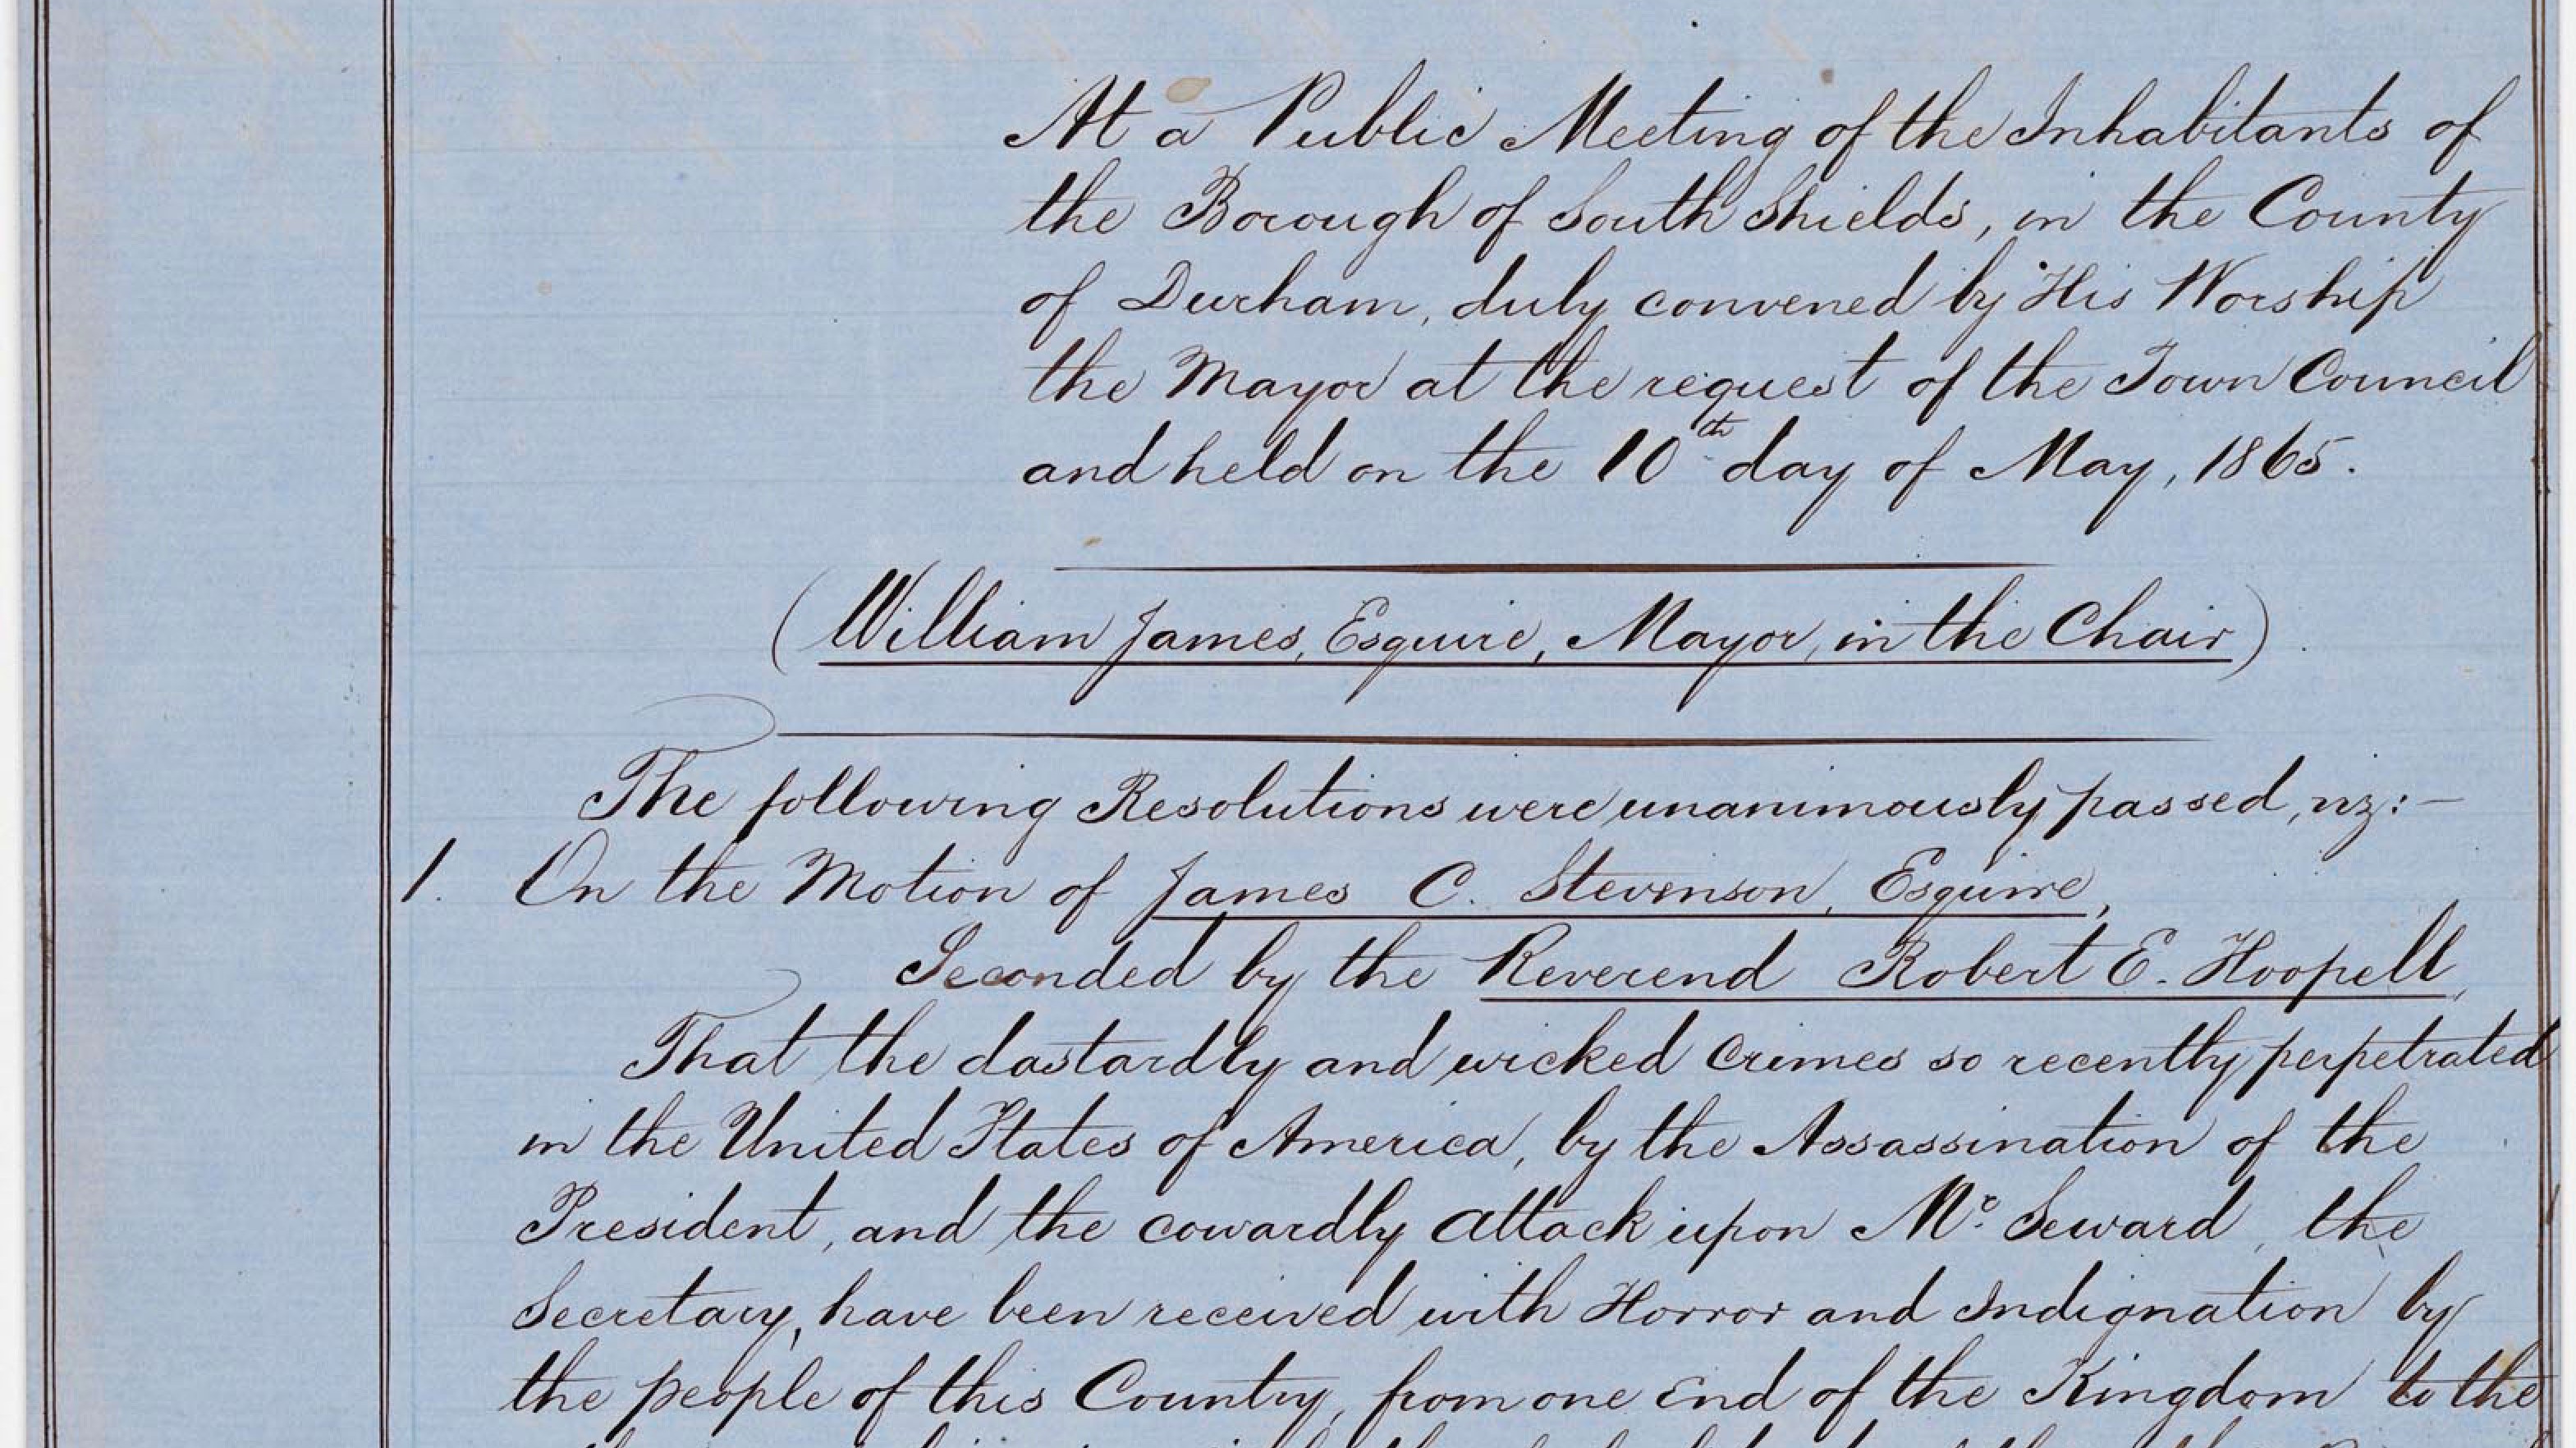 At a Public Meeting of the Inhabitants of
the Borough of South Shields, in the County
of Durham, duly convened by His Worship
the Mayor at the request of the Town Council
and held on the 10th day of May, 1865.
(William James, Esquire, Mayor, in the Chair)
The following Resolutions were unanimously passed, viz:—
1. On the Motion of James C. Stevenson, Esquire,
Seconded by the Reverend Robert E. Hoopell,
That the dastardly and wicked Crimes so recently perpetrated
in the United States of America, by the Assassination of the
President, and the cowardly Attack upon Mr. Seward, the
Secretary, have been received with Horror and Indignation by
the people of this Country, from one End of the Kingdom to the